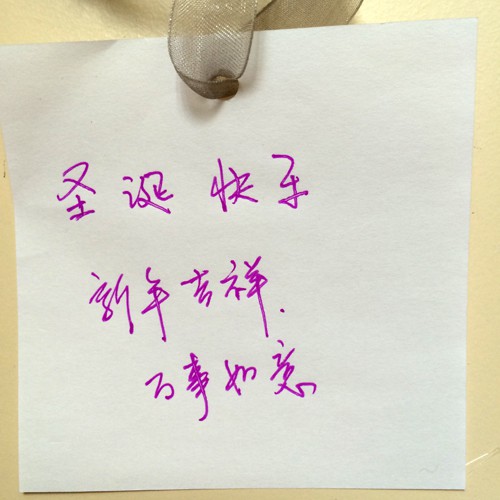 圣诞快乐
新年吉祥.
万事如意